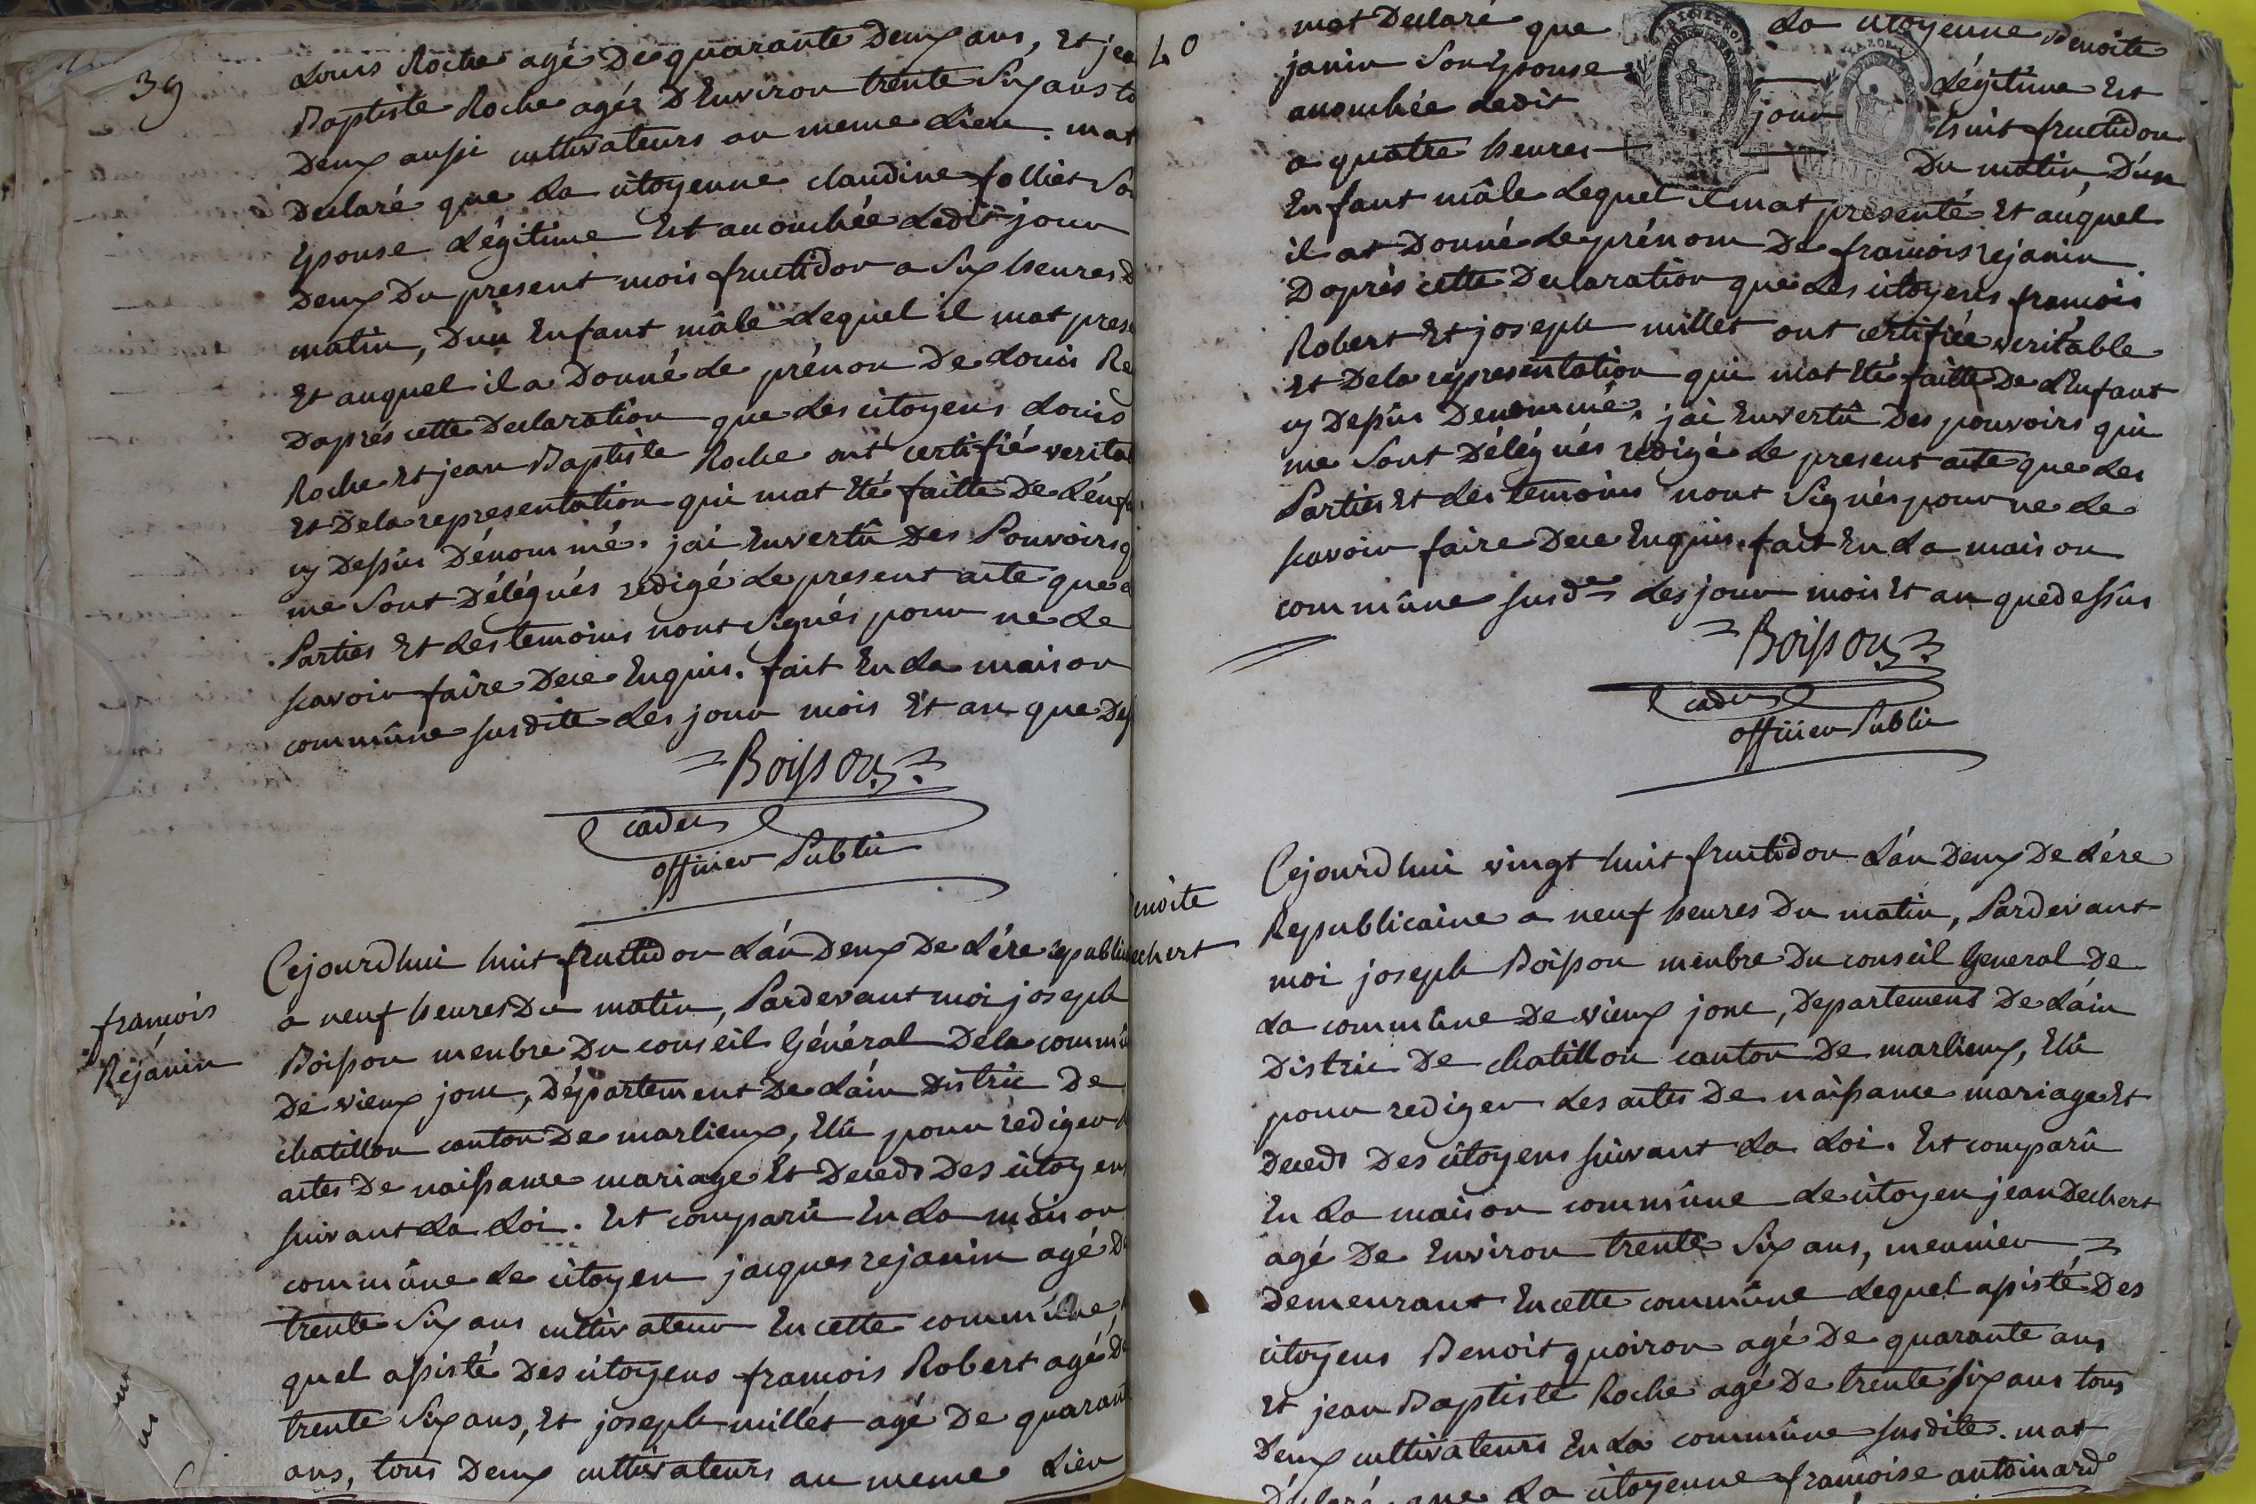 39
Louis Roche agé De quarante Deux ans, Et jea
Baptiste Roche agér D'Environ trente Six ans to
Deux aussi cultivateurs au meme Lieu. mat
Declaré que La citoyenne claudine folliet So
Epouse Légitime Est acouchée Ledit jour
Deux Du present mois fructidor a Six heures D
matin, D'un Enfant mâle Lequel il mat prese
Et auquel il a Donné Le prénon De Louis Ro
Daprés cette Declaration que Les citoyens Louis
Roche Et jean Baptiste Roche ont certifié verita
Et Dela representation qui mat Eté faitte De L'énfa
cy Dessûs Dénommé. jai Envertû Des Pouvoirs q
me Sont Délégués redigé Le present acte que L
Parties Et Les temoins nont Signés pour ne Le
scavoir faire De ce Enquis. fait En La maison
commûne susdite Les jour mois Et an que Dess
Boisson
cadet
officier Public
françois
Réjanin
Cejourdhui huit fructidor L'án Deux De L'ére républic
a neuf heures Du matin, Pardevant moi joseph
Boisson menbre Du conseil Général Dela commû
De vieux jonc, Département De L'áin Distric De
chatillon canton De marlieux, Elû pour rédiger L
actes De naissance mariage Et Deceds Des citoyens
suivant La Loi. Est comparû En La maison
commûne Le citoyen jacques rejanin agé D
trente Six ans cultivateur En cette commûne,
quel assisté Des citoyens francois Robert agé D
trente Six ans, Et joseph millét agé De quarant
ans, tous Deux cultivateurs au meme Lieu
40
mat Declaré que La citoyenne Benoite
janin Son Epouse Légitime Est
acouchée Ledit jour huit fructidor
a quatre heures Du matin, D'un
Enfant mâle Lequel il mat presenté Et auquel
il at Donné Le prénom De francois rejanin
Daprés cette Declaration que Les citoyens francois
Robert Et joseph millet ont certifiée veritable
Et Dela representation qui mat Eté faitte De L'Enfant
cy Dessûs Denommé. jai Envertû Des pouvoirs qui
me Sont Délégués rédigé Le present acte que Les
Parties Et Les temoins nont Signés pour ne Le
scavoir faire De ce Enquis. fait En La maison
commûne susde Les jour mois Et an que dessûs
Boisson
cadet
officier Public
enoite
echert
Cejourdhui vingt huit fructidor L'án Deux De L'ére
Republicaine a neuf heures Du matin, Pardevant
moi joseph Boisson menbre Du conseil General De
La commûne De vieux jonc, Departement De L'áin
Distric De chatillon canton De marlieux, Elû
pour rediger Les actes De naissance mariage Et
Deceds Des citoyens suivant La Loi. Est comparû
En La maison commûne Le citoyen jean Dechert
agé De Environ trente Six ans, meunier
Demeurant En cette commûne Lequel assisté Des
citoyens Benoit quoiron agé De quarante ans
Et jean Baptiste Roche agé De trente six ans tous
Deux cultivateurs En La commûne susdite. mat
Déclaré que La citoyenne francoise antoinard